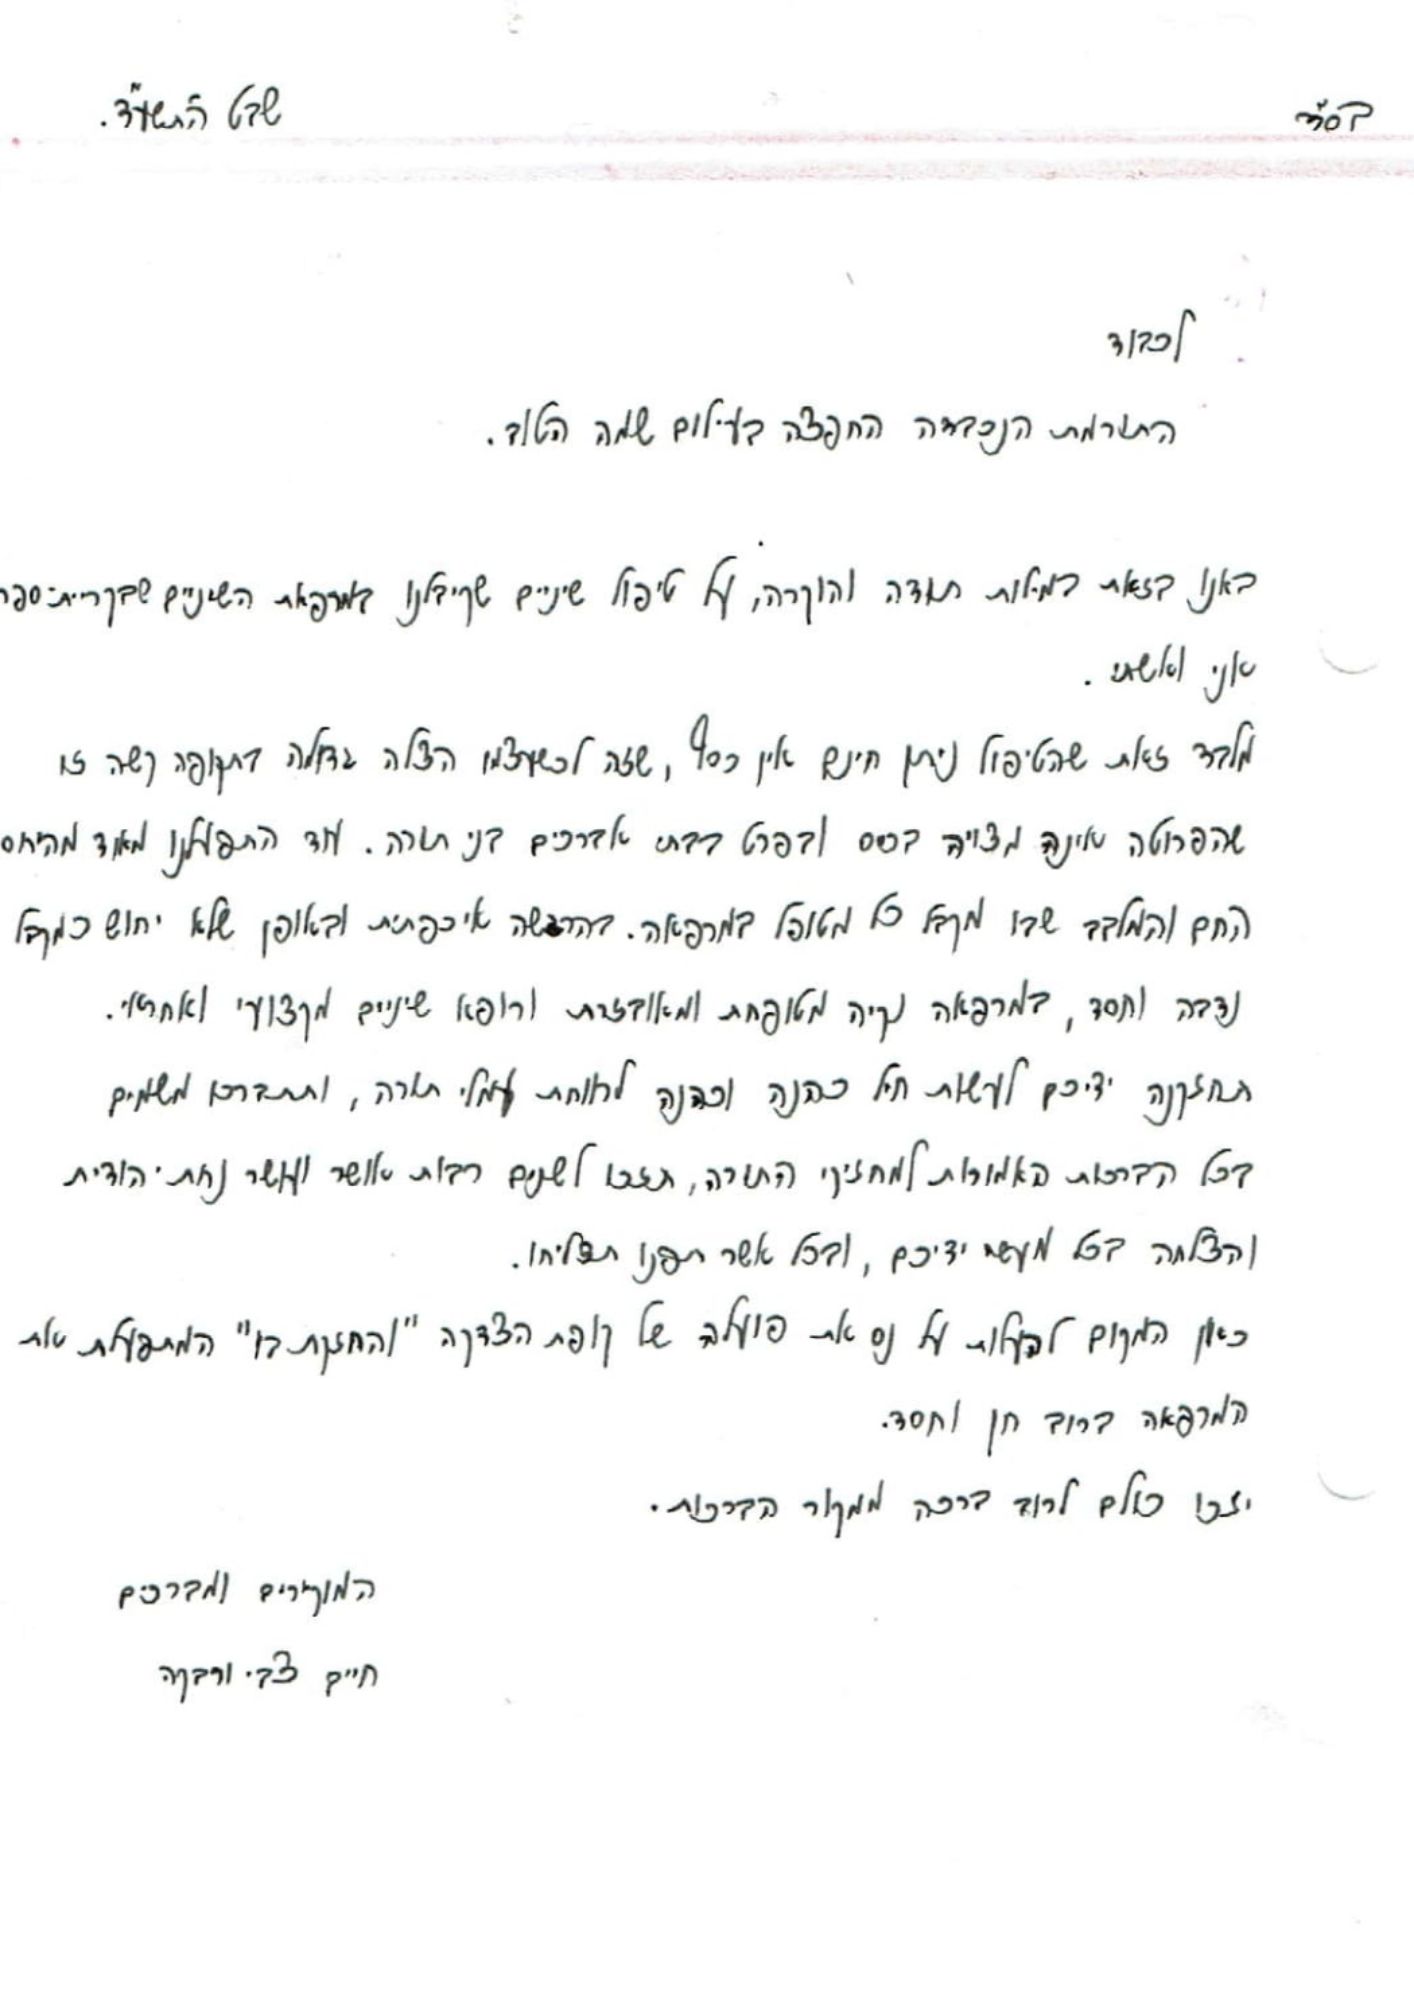 בס"ד
שבט ה'תשע"ד.
לכבוד
התורמת הנכבדה החפצה בעילום שמה הטוב.
באנו בזאת במילות תודה והוקרה, על טיפול שיניים שקיבלנו במרפאת השיניים שבקריית-ספר
אני ואשתי.
מלבד זאת שהטיפול ניתן חינם אין כסף, שזה לכשעצמו הצלה גדולה בתקופה קשה זו
שהפרוטה אינה מצויה בכיס ובפרט בבתי אברכים בני תורה. עוד התפעלנו מאוד מהיחס
החם והמלבב שבו מקבל כל מטופל במרפאה. בהרגשה איכפתית ובאופן שלא יחוש כמקבל
נדבה וחסד, במרפאה נקיה מטופחת ומאובזרת ורופא שיניים מקצועי ואחראי.
תחזקנה ידיכם לעשות חיל כהנה וכהנה לרווחת עמלי תורה, ותתברכו משמים
בכל הברכות האמורות למחזיקי התורה, תזכו לשנים רבות אושר ועושר נחת יהודית
והצלחה בכל מעשי ידיכם, ובכל אשר תפנו תצליחו.
כאן המקום להעלות על נס את פועלה של קופת הצדקה "והחזקת בו" המתפעלת את
המרפאה ברוב חן וחסד.
יזכו כולם לרוב ברכה ממקור הברכות.
המוקירים ומברכים
חיים צבי ורבקה